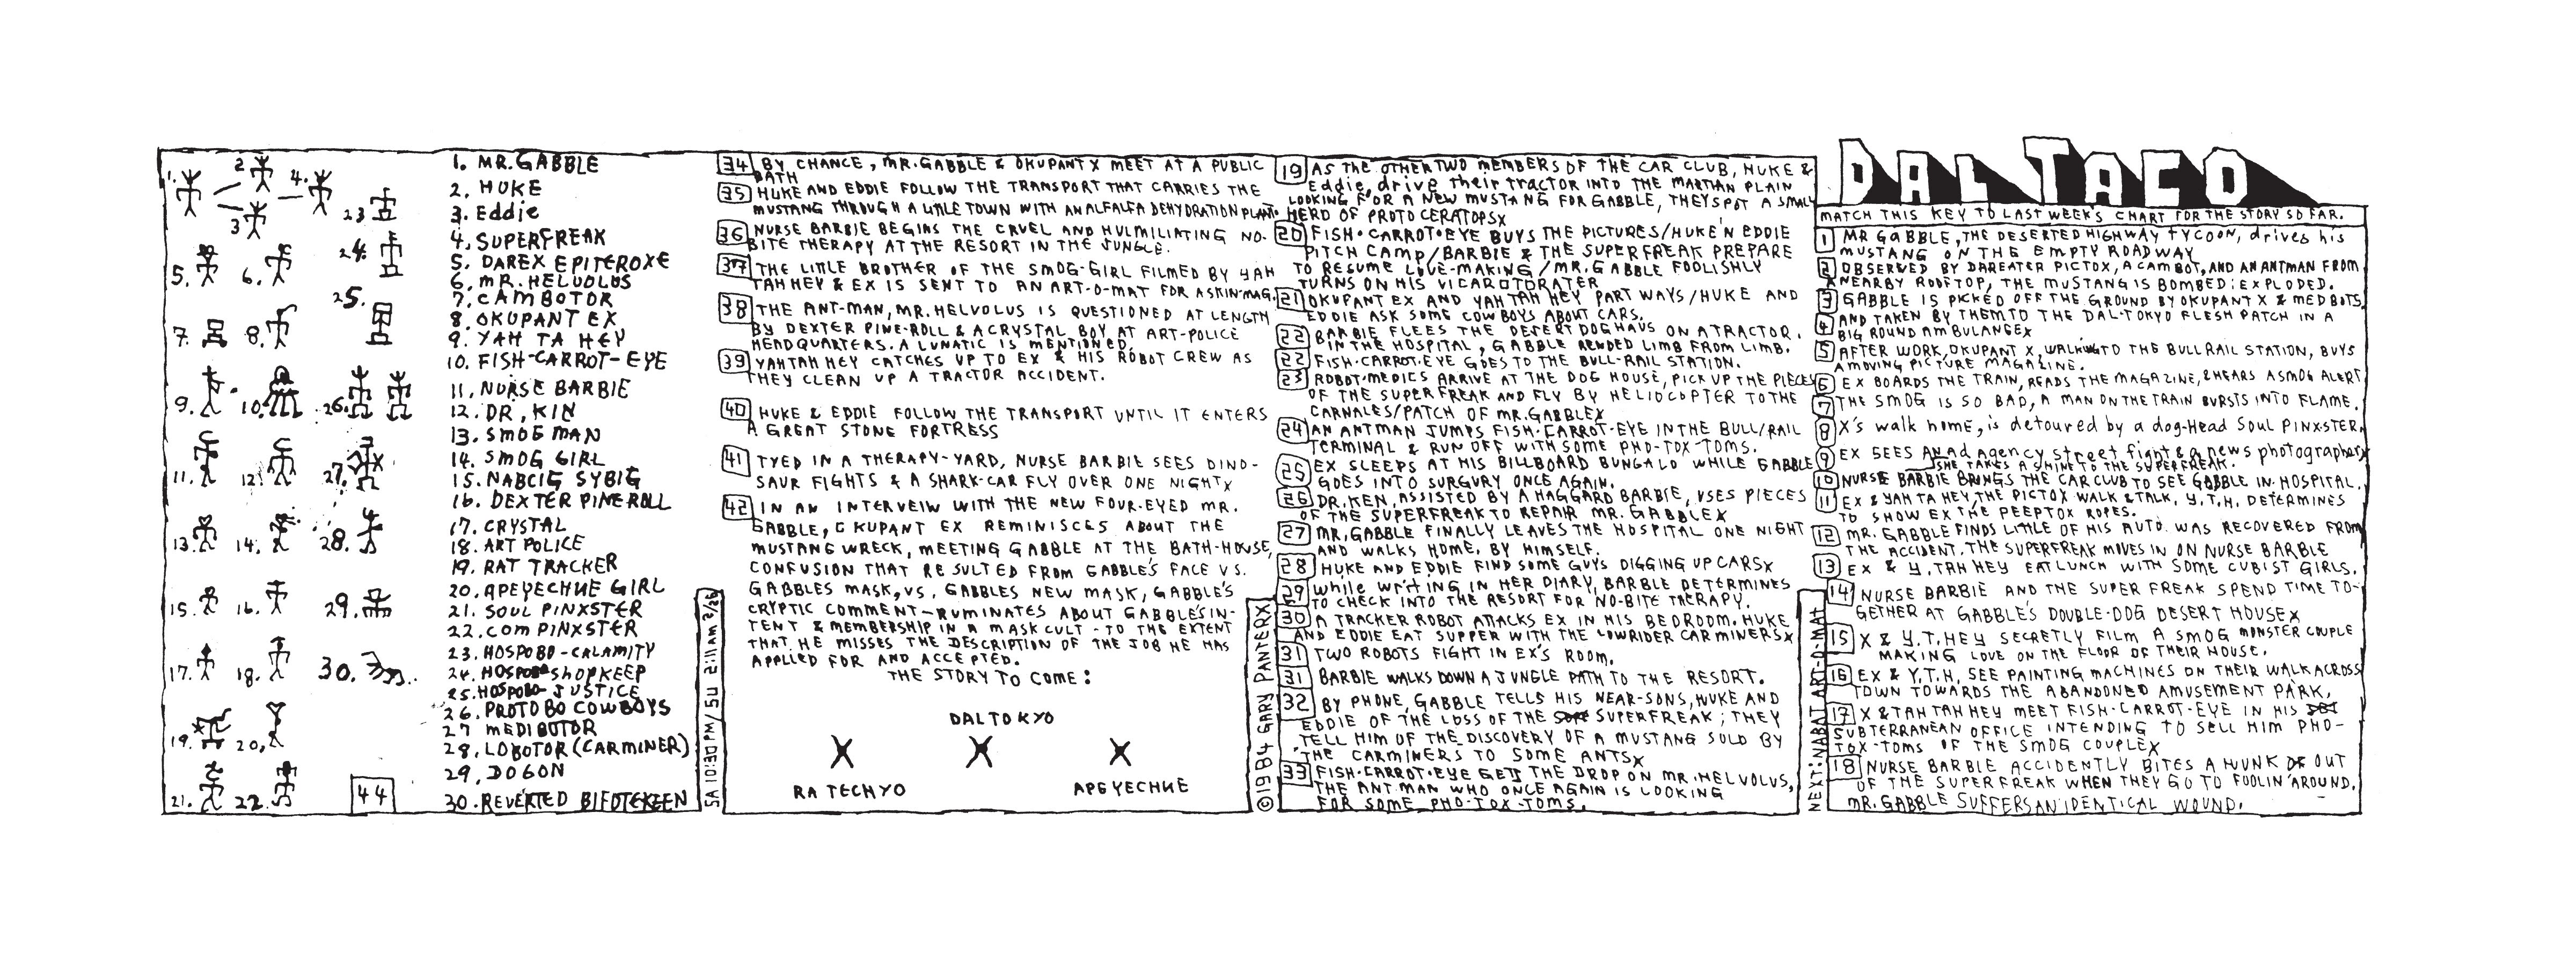 DAL TACO
MATCH THIS KEY TO LAST WEEK'S CHART FOR THE STORY SO FAR.
1 MR GABBLE, THE DESERTED HIGHWAY TYCOON, drives his
MUSTANG ON THE EMPTY ROADWAY
2 OBSERVED BY DAREATER PICTOX, A CAMBOT, AND AN ANTMAN FROM
A NEARBY ROOFTOP, THE MUSTANG IS BOMBED: EXPLODED.
3 GABBLE IS PICKED OFF THE GROUND BY OKUPANT X & MEDBOTS,
4 AND TAKEN BY THEM TO THE DAL-TOKYO FLESH PATCH IN A
BIG ROUND AMBULANCEX
5 AFTER WORK, OKUPANT X, WALKING TO THE BULL RAIL STATION, BUYS
A MOVING PICTURE MAGAZINE.
6 EX BOARDS THE TRAIN, READS THE MAGAZINE, & HEARS A SMOG ALERT
7 THE SMOG IS SO BAD, A MAN ON THE TRAIN BURSTS INTO FLAME.
8 X's walk home, is detoured by a dog-Head Soul PINXSTER.
9 EX SEES AN ad agency street fight & a news photographer
SHE TAKES A SHINE TO THE SUPERFREAK.
10 NURSE BARBIE BRINGS THE CAR CLUB TO SEE GABBLE IN HOSPITAL.
11 EX & YAH TA HEY, THE PICTOX WALK & TALK, Y.T.H. DETERMINES
TO SHOW EX THE PEEPTOX ROPES.
12 MR. GABBLE FINDS LITTLE OF HIS AUTO WAS RECOVERED FROM
THE ACCIDENT. THE SUPERFREAK MOVES IN ON NURSE BARBLE
13 EX & Y. TAH HEY EAT LUNCH WITH SOME CUBIST GIRLS.
14 NURSE BARBIE AND THE SUPER FREAK SPEND TIME TO-
GETHER AT GABBLE'S DOUBLE-DOG DESERT HOUSEX
15 X & Y.T.HEY SECRETLY FILM A SMOG MONSTER COUPLE
MAKING LOVE ON THE FLOOR OF THEIR HOUSE.
16 EX & Y,T.H, SEE PAINTING MACHINES ON THEIR WALK ACROSS
TOWN TOWARDS THE ABANDONED AMUSEMENT PARK,
17 X & TAH TAH HEY MEET FISH-CARROT-EYE IN HIS
SUBTERRANEAN OFFICE INTENDING TO SELL HIM PHO-
TOX-TOMS OF THE SMOG COUPLEX
18 NURSE BARBIE ACCIDENTLY BITES A HUNK OUT
OF THE SUPERFREAK WHEN THEY GO TO FOOLIN' AROUND.
MR. GABBLE SUFFERS AN IDENTICAL WOUND.
NEXT: NABAT ART-O-MAT
19 AS THE OTHER TWO MEMBERS OF THE CAR CLUB, HUKE &
Eddie, drive their tractor INTO THE MARTIAN PLAIN
LOOKING FOR A NEW MUSTANG FOR GABBLE, THEY SPOT A SMALL
HERD OF PROTO CERATOPSX
20 FISH·CARROT·EYE BUYS THE PICTURES/HUKE'N EDDIE
PITCH CAMP/BARBIE & THE SUPERFREAK PREPARE
TO RESUME LOVE-MAKING/MR. GABBLE FOOLISHLY
TURNS ON HIS VICAROTORATER
21 OKUPANT EX AND YAH TAH HEY PART WAYS/HUKE AND
EDDIE ASK SOME COWBOYS ABOUT CARS.
22 BARBIE FLEES THE DESERT DOGHAUS ON A TRACTOR.
IN THE HOSPITAL, GABBLE RENDED LIMB FROM LIMB.
22 FISH·CARROT·EYE GOES TO THE BULL-RAIL STATION.
23 ROBOT-MEDICS ARRIVE AT THE DOG HOUSE, PICK UP THE PIECES
OF THE SUPER FREAK AND FLY BY HELIOCOPTER TO THE
CARNALES/PATCH OF MR. GABBLEX
24 AN ANTMAN JUMPS FISH-CARROT-EYE IN THE BULL/RAIL
TERMINAL & RUN OFF WITH SOME PHO-TOX-TOMS.
25 EX SLEEPS AT HIS BILLBOARD BUNGALO WHILE GABBLE
GOES INTO SURGURY ONCE AGAIN.
26 DR. KEN, ASSISTED BY A HAGGARD BARBIE, USES PIECES
OF THE SUPERFREAK TO REPAIR MR. GABBLEX
27 MR. GABBLE FINALLY LEAVES THE HOSPITAL ONE NIGHT
AND WALKS HOME. BY HIMSELF.
28 HUKE AND EDDIE FIND SOME GUYS DIGGING UP CARSX
29 while writing IN HER DIARY, BARBLE DETERMINES
TO CHECK INTO THE RESORT FOR NO-BITE THERAPY.
30 A TRACKER ROBOT ATTACKS EX IN HIS BEDROOM. HUKE
AND EDDIE EAT SUPPER WITH THE LOWRIDER CARMINERSX
31 TWO ROBOTS FIGHT IN EX'S ROOM.
31 BARBIE WALKS DOWN A JUNGLE PATH TO THE RESORT.
32 BY PHONE, GABBLE TELLS HIS NEAR-SONS, HUKE AND
EDDIE OF THE LOSS OF THE SUPERFREAK; THEY
TELL HIM OF THE DISCOVERY OF A MUSTANG SOLD BY
THE CARMINERS TO SOME ANTSX
33 FISH-CARROT-EYE GETS THE DROP ON MR. HELVOLUS,
THE ANT MAN WHO ONCE AGAIN IS LOOKING
FOR SOME PHO-TOX-TOMS.
©1984 GARY PANTERX
34 BY CHANCE, MR. GABBLE & OKUPANT X MEET AT A PUBLIC
BATH
35 HUKE AND EDDIE FOLLOW THE TRANSPORT THAT CARRIES THE
MUSTANG THROUGH A LITTLE TOWN WITH AN ALFALFA DEHYDRATION PLANT.
36 NURSE BARBIE BEGINS THE CRUEL AND HULMILIATING NO-
BITE THERAPY AT THE RESORT IN THE JUNGLE.
37 THE LITTLE BROTHER OF THE SMOG-GIRL FILMED BY YAH
TAH HEY & EX IS SENT TO AN ART-O-MAT FOR A SKIN-MAG.
38 THE ANT-MAN, MR. HELVOLUS IS QUESTIONED AT LENGTH
BY DEXTER PINE-ROLL & A CRYSTAL BOY AT ART-POLICE
HEADQUARTERS. A LUNATIC IS MENTIONED.
39 YAH TAH HEY CATCHES UP TO EX & HIS ROBOT CREW AS
THEY CLEAN UP A TRACTOR ACCIDENT.
40 HUKE & EDDIE FOLLOW THE TRANSPORT UNTIL IT ENTERS
A GREAT STONE FORTRESS
41 TYED IN A THERAPY-YARD, NURSE BARBIE SEES DINO-
SAUR FIGHTS & A SHARK-CAR FLY OVER ONE NIGHTX
42 IN AN INTERVEIW WITH THE NEW FOUR-EYED MR.
GABBLE, OKUPANT EX REMINISCES ABOUT THE
MUSTANG WRECK, MEETING GABBLE AT THE BATH-HOUSE,
CONFUSION THAT RESULTED FROM GABBLE'S FACE VS.
GABBLES MASK, VS. GABBLES NEW MASK, GABBLE'S
CRYPTIC COMMENT—RUMINATES ABOUT GABBLE'S IN-
TENT & MEMBERSHIP IN A MASK CULT - TO THE EXTENT
THAT HE MISSES THE DESCRIPTION OF THE JOB HE HAS
APPLIED FOR AND ACCEPTED.
THE STORY TO COME:
DALTOKYO
X X X
RATECHYO
APEYECHUE
SA 10:30 PM/ SU 2:11 AM 3/25
1. 2. 3. 4. 23
5. 6. 24.
7. 8. 25.
9. 10. 26.
11. 12. 27.
13. 14. 28.
15. 16. 29.
17. 18. 30.
19. 20.
21. 22. 44
1. MR. GABBLE
2. HUKE
3. Eddie
4. SUPERFREAK
5. DAREX EPITEROXE
6. MR. HELVOLUS
7. CAMBOTOR
8. OKUPANT EX
9. YAH TA HEY
10. FISH-CARROT-EYE
11. NURSE BARBIE
12. DR, KIN
13. SMOG MAN
14. SMOG GIRL
15. NABCIG SYBIG
16. DEXTER PINEROLL
17. CRYSTAL
18. ART POLICE
19. RAT TRACKER
20. APEYECHUE GIRL
21. SOUL PINXSTER
22. COM PINXSTER
23. HOSPOBO-CALAMITY
24. HOSPOBO SHOPKEEP
25. HOSPOBO-JUSTICE
26. PROTOBO COWBOYS
27 MEDIBOTOR
28. LOBOTOR (CARMINER)
29. DOGON
30. REVERTED BIFOTEKEEN